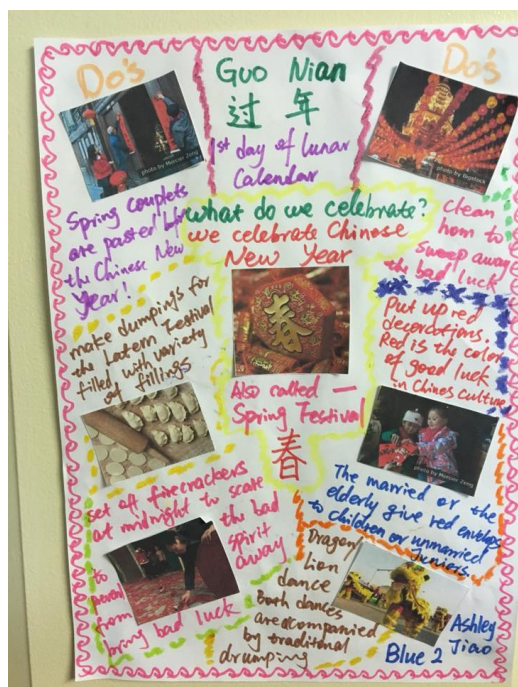 Do's
Guo Nian
过 年
1st day of lunar
Calendar
Do's
photo by Mercier Zeng
photo by Bigstock
Spring couplets
are pasted before
the Chinese New
Year!
what do we celebrate?
we celebrate Chinese
New Year
春
Also called —
Spring Festival
春
clean
hom to
sweep away
the bad luck
make dumpings for
the Latern Festival
filled with variety
of fillings
Put up red
decorations.
Red is the color
of good luck
in Chines Culture
photo by Mercier Zeng
set off firecrackers
at midnight to scare
the bad
spirit
away
to
from
bring bad luck
The married or the
elderly give red envelops
to children or unmarried
Juniors.
Dragon
Lion
dance
Both dances
are accompanied
by traditional
drumping
Ashley
Jiao
Blue 2